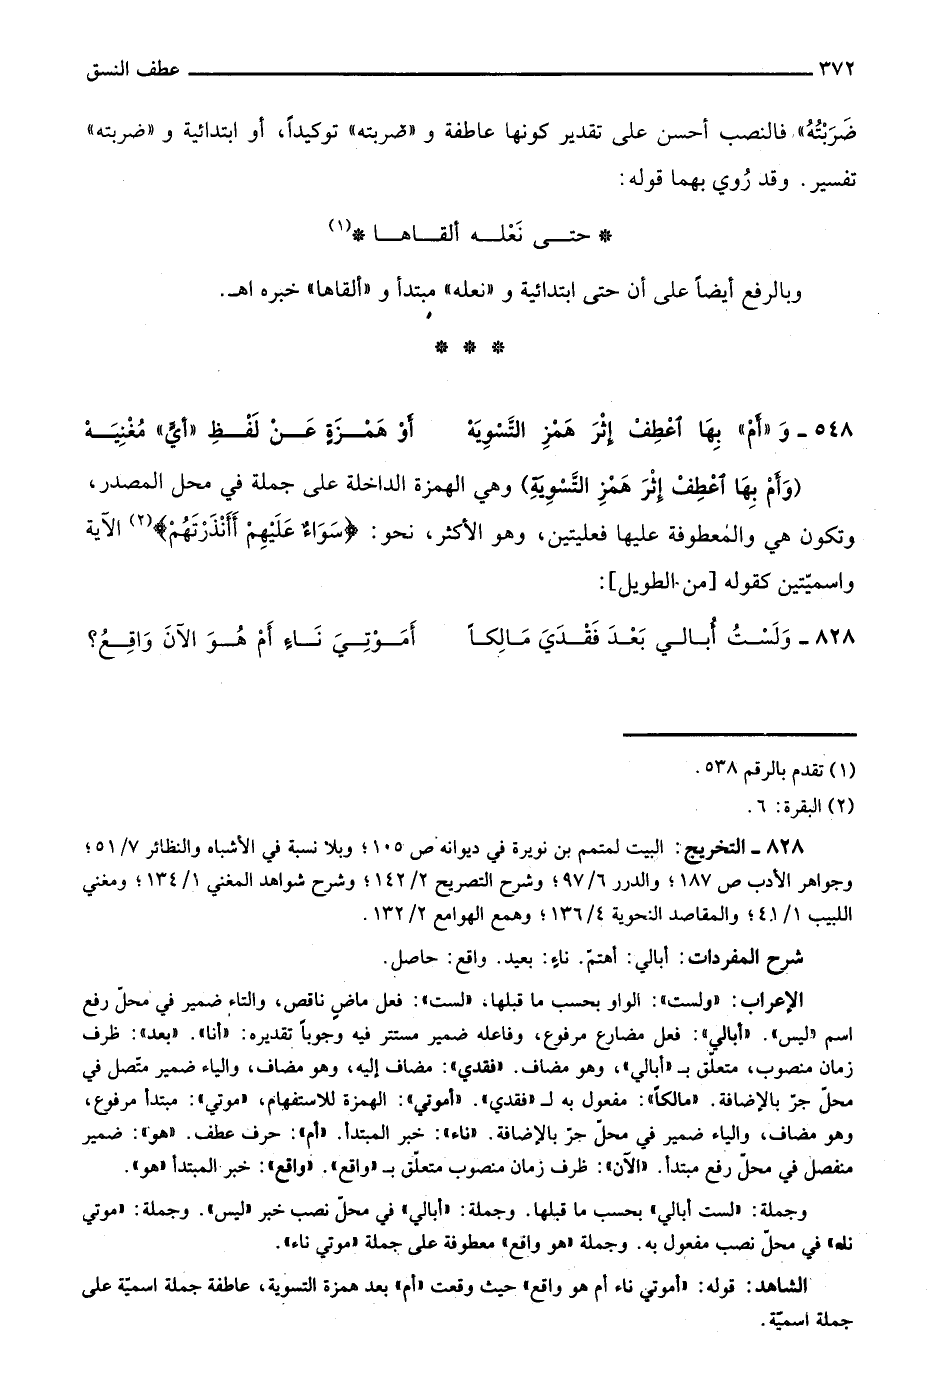 ٣٧٢ ــــــــــ عطف النسق
ضَرَبْتُهُ» فالنصب أحسن على تقدير كونها عاطفة و «ضربته» توكيداً، أو ابتدائية و «ضربته»
تفسير. وقد رُوي بهما قوله:
* حتـــى نَعْلـــه ألقـــاهـــا *(١)
وبالرفع أيضاً على أن حتى ابتدائية و «نعله» مبتدأ و «ألقاها» خبره اهـ.
* * *
٥٤٨ ـ وَ «أَمْ» بِهَا اَعْطِفْ إِثْرَ هَمْزِ التَّسْوِيَهْ أَوْ هَمْـــزَةٍ عَـــنْ لَفْـــظِ «أَيٍّ» مُغْنِيَـــهْ
(وَأَمْ بِهَا اَعْطِفْ إِثْرَ هَمْزِ التَّسْوِيَةِ) وهي الهمزة الداخلة على جملة في محل المصدر،
وتكون هي والمعطوفة عليها فعليتين، وهو الأكثر، نحو: ﴿سَوَاءٌ عَلَيْهِمْ أَأَنْذَرْتَهُمْ﴾(٢) الآية
واسميّتين كقوله [من الطويل]:
٨٢٨ ـ وَلَسْتُ أُبـالـي بَعْـدَ فَقْـدَيَ مَـالِكـاً أَمَـوْتِـيَ نَـاءٍ أَمْ هُـوَ الآنَ وَاقِـعُ؟
(١) تقدم بالرقم ٥٣٨.
(٢) البقرة: ٦.
٨٢٨ ـ التخريج: البيت لمتمم بن نويرة في ديوانه ص ١٠٥؛ وبلا نسبة في الأشباه والنظائر ٧/ ٥١؛
وجواهر الأدب ص ١٨٧؛ والدرر ٦/ ٩٧؛ وشرح التصريح ٢/ ١٤٢؛ وشرح شواهد المغني ١/ ١٣٤؛ ومغني
اللبيب ١/ ٤١؛ والمقاصد النحوية ٤/ ١٣٦؛ وهمع الهوامع ٢/ ١٣٢.
شرح المفردات: أبالي: أهتمّ. ناءٍ: بعيد. واقع: حاصل.
الإعراب: «ولست»: الواو بحسب ما قبلها، «لست»: فعل ماضٍ ناقص، والتاء ضمير في محلّ رفع
اسم «ليس». «أبالي»: فعل مضارع مرفوع، وفاعله ضمير مستتر فيه وجوباً تقديره: «أنا». «بعد»: ظرف
زمان منصوب، متعلّق بـ «أبالي»، وهو مضاف. «فقدي»: مضاف إليه، وهو مضاف، والياء ضمير متّصل في
محلّ جرّ بالإضافة. «مالكاً»: مفعول به لـ «فقدي». «أموتي»: الهمزة للاستفهام، «موتي»: مبتدأ مرفوع،
وهو مضاف، والياء ضمير في محلّ جرّ بالإضافة. «ناء»: خبر المبتدأ. «أم»: حرف عطف. «هو»: ضمير
منفصل في محلّ رفع مبتدأ. «الآن»: ظرف زمان منصوب متعلّق بـ «واقع». «واقع»: خبر المبتدأ «هو».
وجملة: «لست أبالي» بحسب ما قبلها. وجملة: «أبالي» في محلّ نصب خبر «ليس». وجملة: «موتي
ناء» في محلّ نصب مفعول به. وجملة «هو واقع» معطوفة على جملة «موتي ناء».
الشاهد: قوله: «أموتي ناء أم هو واقع» حيث وقعت «أم» بعد همزة التسوية، عاطفة جملة اسميّة على
جملة اسميّة.